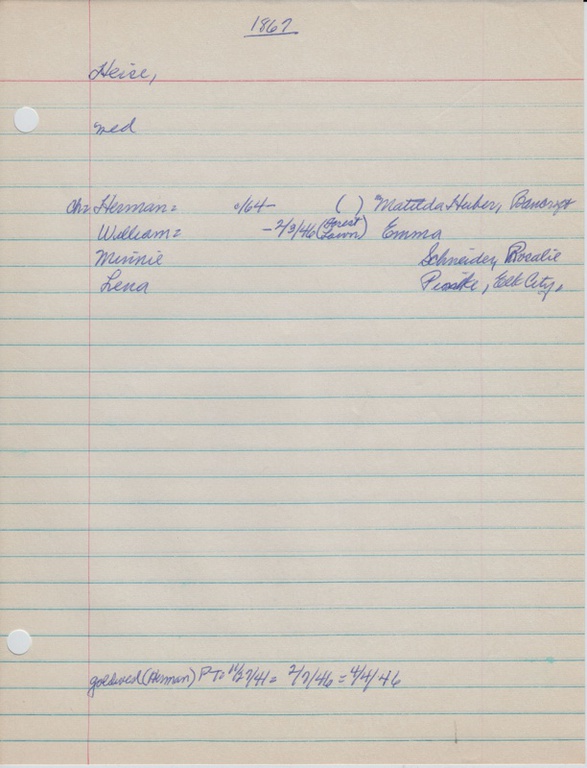 1867
Heise,
med
ch: Herman= 0/64- ( ) Matilda Huber, Bancroft
William= -2/9/46 (Forest Lawn) Emma
Minnie Schneider, Rosalie
Lena , Elk City,
goldwed (Herman) PT: 11/27/41= 2/7/46= 4/4/46